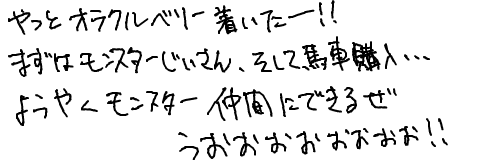 やっとオラクルベリー着いたー!!
まずはモンスターじいさん、そして馬車購入…
ようやくモンスター仲間にできるぜ
うおおおおおおおお!!